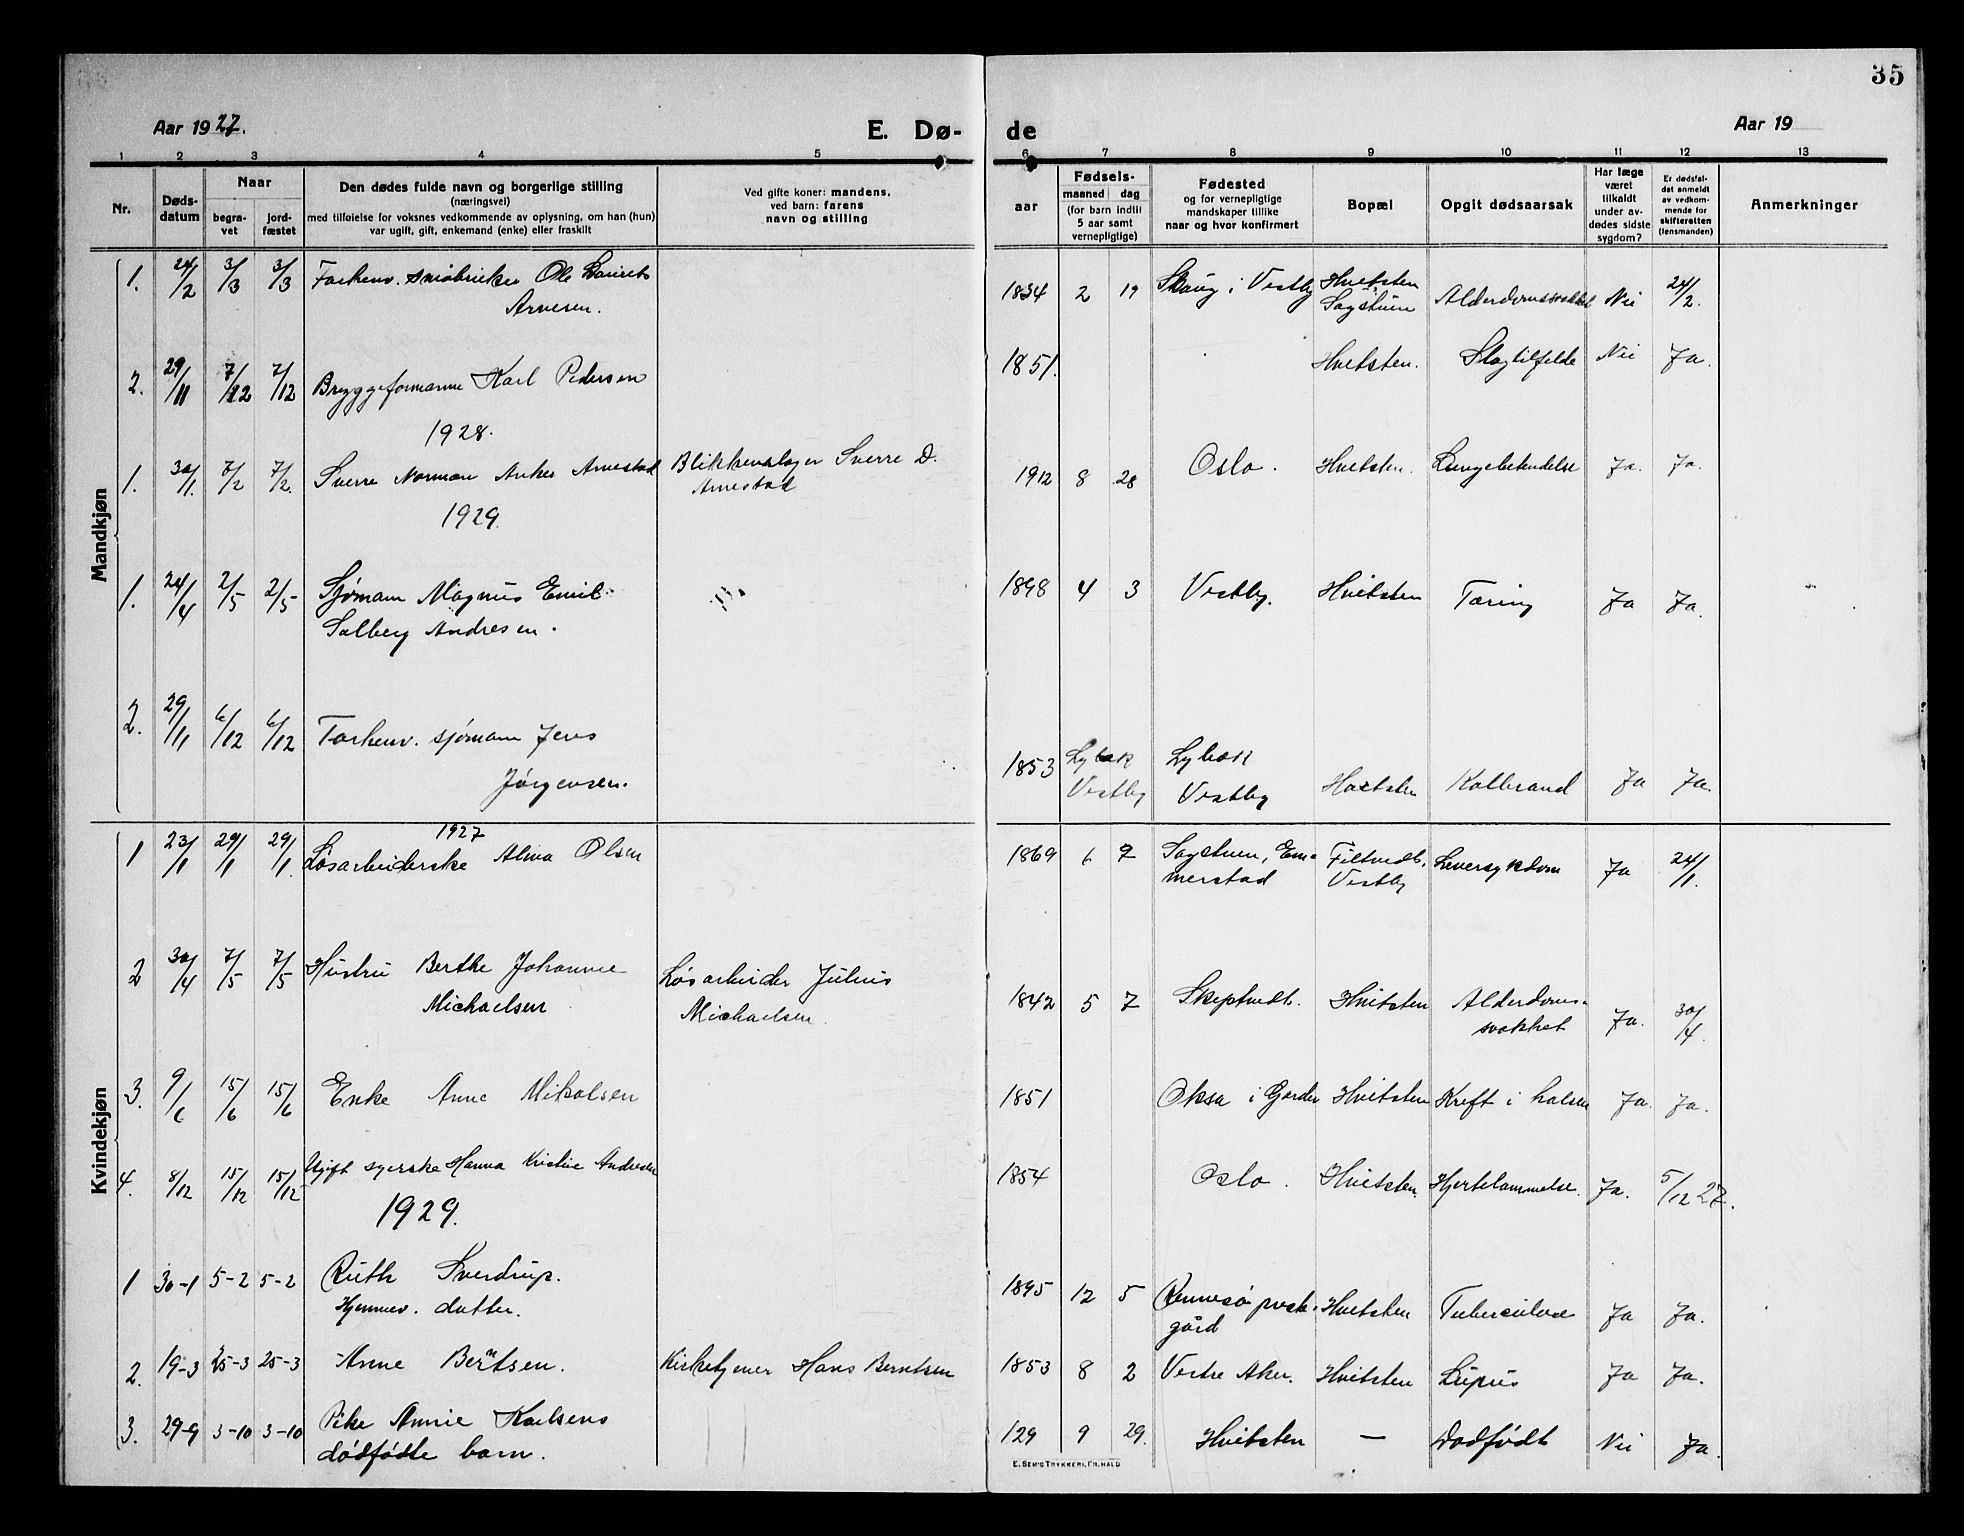 35
Aar 1927.
E. Dø-
de
Aar 19
1 2 3 4 5 6 7 8 9 10 11 12 13
Nr.
Døds-
datum
Naar
begra-
vet
jord-
fæstet
Den dødes fulde navn og borgerlige stilling
(næringsvei)
med tilføielse for voksnes vedkommende av oplysning, om han (hun)
var ugift, gift, enkemand (enke) eller fraskilt
Ved gifte koner: mandens,
ved barn: farens
navn og stilling
Fødsels-
aar
maaned dag
(for barn indtil
5 aar samt
vernepligtige)
Fødested
og for vernepligtige
mandskaper tillike
naar og hvor konfirmert
Bopæl
Opgit dødsaarsak
Har læge
været
tilkaldt
under av-
dødes sidste
sygdom?
Er dødsfal-
det anmeldt
av vedkom-
mende for
skifteretten
(lensmanden)
Anmerkninger
Mandkjøn
1. 24/2 3/3 3/3 Forhenv. Ole
Arnesen.
1834 2 19 Skaug i Vestby Hvitsten
Sagstuen Alderdomssvakhet Nei 24/2.
2. 29/11 7/12 7/12 Bryggeformann Karl Pedersen
1851. Hvitsten. Slagtilfelde Nei Ja.
1928.
1. 30/1. 7/2 7/2. Sverre Norman Anker Arnestad Blikkenslager Sverre D.
Arnestad
1912 8 28 Oslo. Hvitsten. Lungebetendelse Ja. Ja.
1929.
1. 24/4 2/5 2/5 Sjømann Magnus Emil
Solberg Andresen.
1898 4 3 Vestby. Hvitsten Tæring Ja Ja.
2. 29/11 6/12 6/12 Forhenv. sjømann Jens
Jørgensen.
1853 Lybæk
Vestby Lybæk
Vestby Hvitsten Kolbrand Ja Ja.
Kvindekjøn
1927
1 23/1 29/1 29/1. Løsarbeiderske Alma Olsen
1869 6 9 Sagstuen, Em-
merstad Filtvedt,
Vestby Leversykdom Ja 24/1.
2 30/4 7/5 7/5 Hustru Berthe Johanne
Michaelsen
Løsarbeider Julius
Michaelsen.
1842 5 7 Skeptvedt. Hvitsten Alderdoms-
svakhet Ja. 30/4.
3. 9/6 15/6 15/6 Enke Anne Mikalsen
1851 Oksa i Garder Hvitsten Kreft i halsen Ja. Ja.
4. 8/12 15/12 15/12 Ugift syerske Hanna Kristine Andresen
1854 Oslo. Hvitsten Hjertelammelse. Ja. 5/12 27.
1929.
1 30-1 5-2 5-2 Ruth Sverdrup.
Hjemmev. datter.
1895 12 5 Rennesø prest-
gård Hvitsten Tuberculose Ja Ja.
2. 19-3 25-3 25-3 Anne Berntsen. Kirketjener Hans Berntsen
1853 8 2 Vestre Aker. Hvitsten Lupus Ja Ja.
3. 29-9 3-10 3-10 Pike Annie Karlsens
dødfødte barn.
129 9 29. Hvitsten — Dødfødt Nei Ja.
E. SEM'S TRYKKERI, FR.HALD